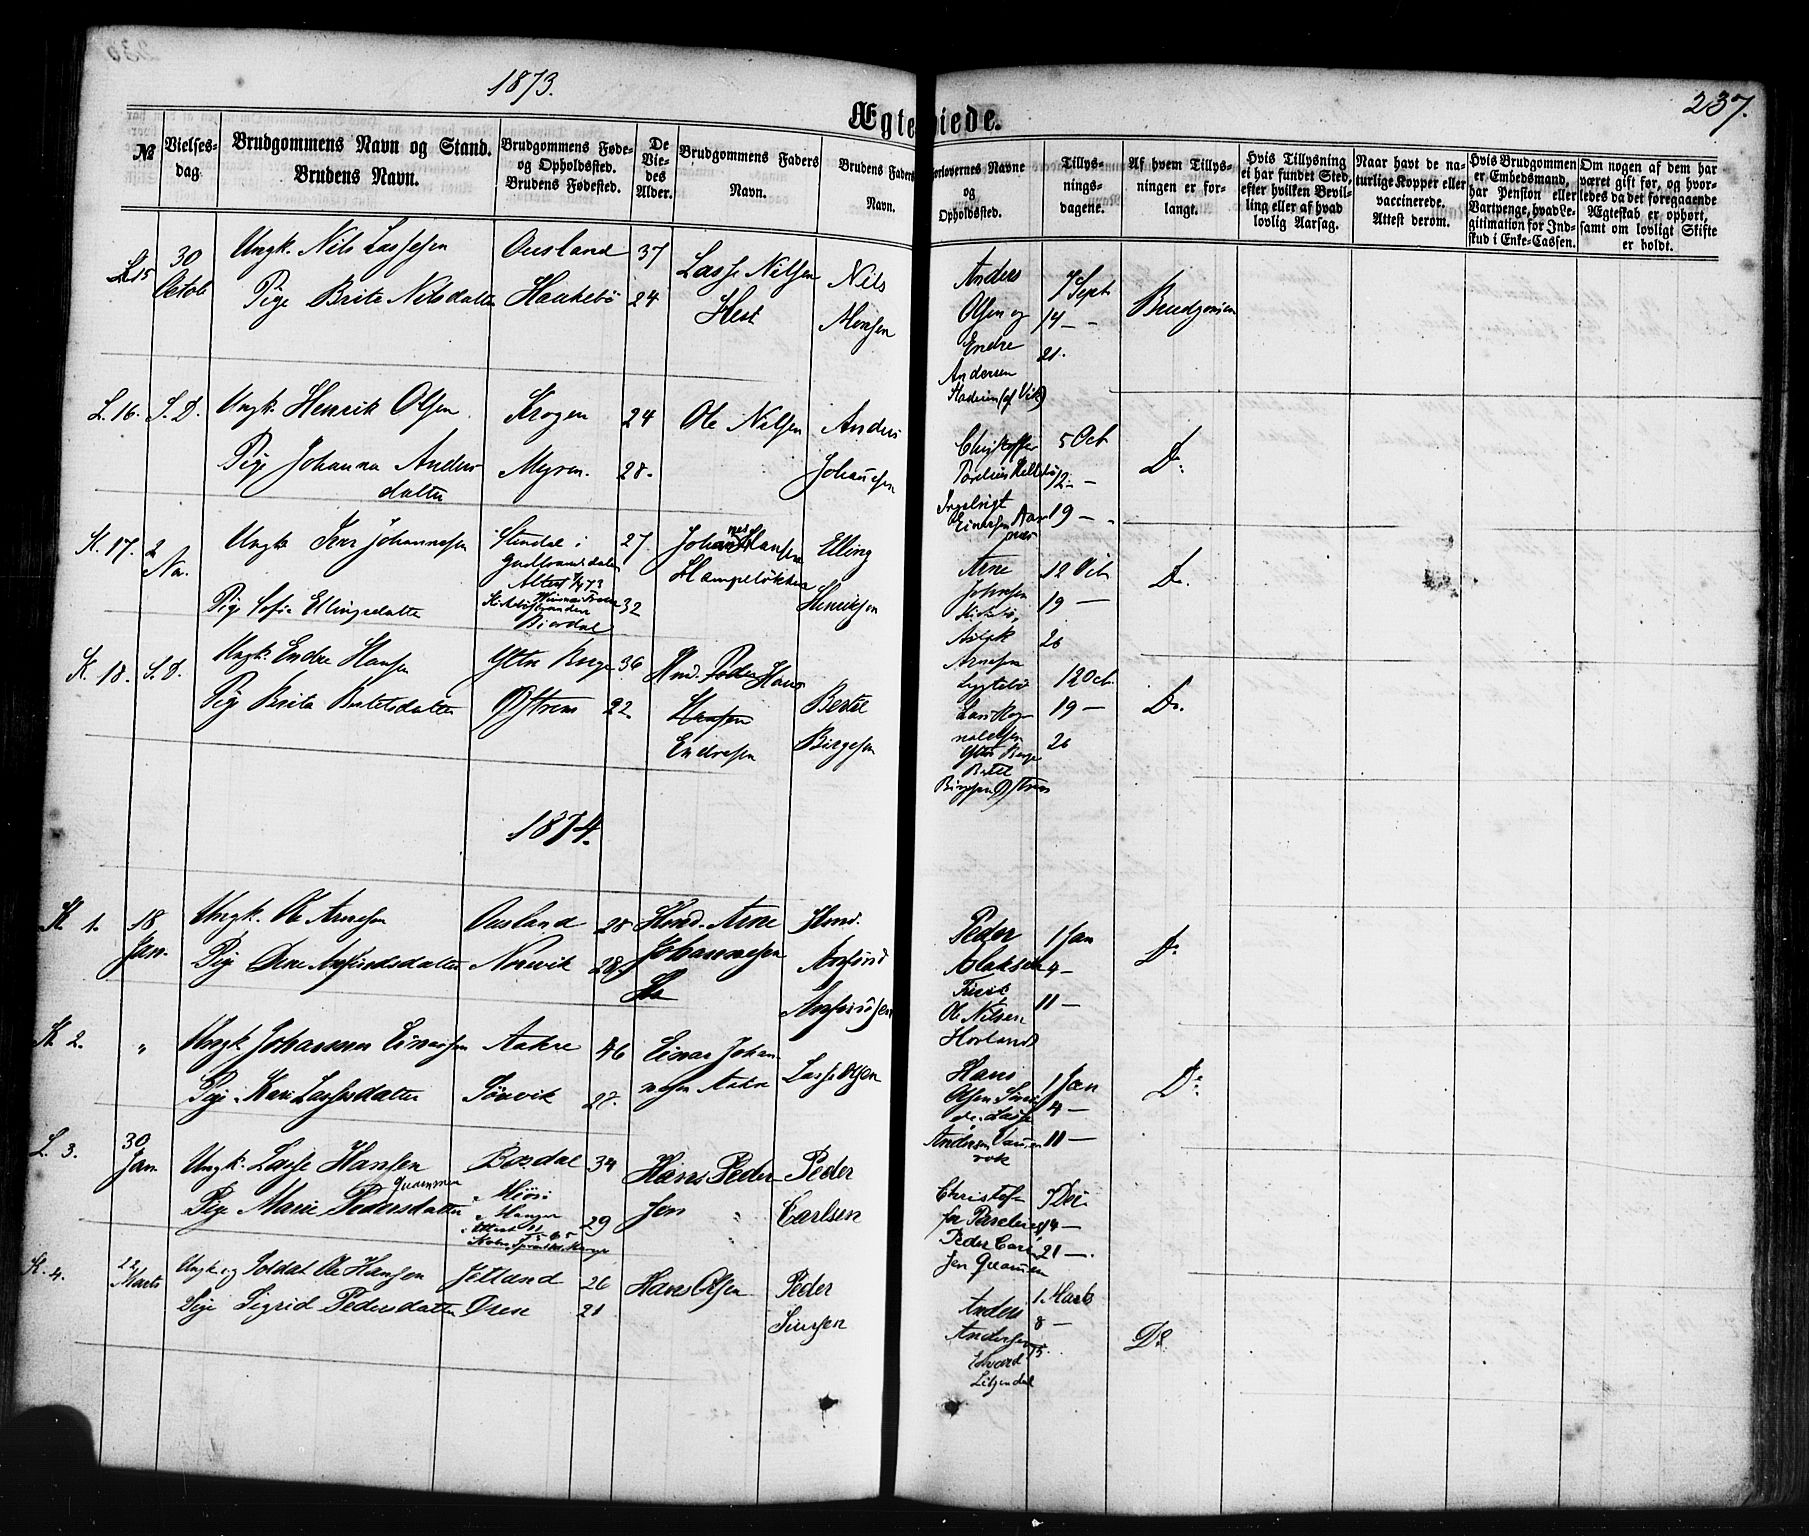 1873.
237.
Ægteviede.
№
Vielses-
dag.
Brudgommens Navn og Stand.
Brudens Navn.
Brudgommens Føde-
og Opholdssted.
Brudens Fødested.
De
Vie-
des
Alder.
Brudgommens Faders
Navn.
Brudens Faders
Navn.
Forlovernes Navne
og
Opholdssted.
Tillys-
nings-
dagene.
Af hvem Tillys-
ningen er for-
langt.
Hvis Tillysning
ei har fundet Sted,
efter hvilken Bevil-
ling eller af hvad
lovlig Aarsag.
Naar havt de na-
turlige Kopper eller
vaccinerede.
Attest derom.
Hvis Brudgommen
er Embedsmand,
har Pension eller
Vartpenge, hvad Le-
gitimation for Ind-
skud i Enke-Cassen.
Om nogen af dem har
været gift før, og hvor-
ledes da det foregaaende
Ægteskab er ophørt,
samt om lovligt Skifte
er holdt.
L 15
30
Octob
Ungk. Nils Lassesen
Pige Brita Nilsdatter
Ousland
Haakebø
37
24
Lasse Nilsen
Hest
Nils
Monsen
Anders
Olsen og
Endre
Andersen
7 Sept
14 –
21.
Brudgommen
L. 16.
S. D.
Ungk. Henrik Olsen
Pige Johanna Anders
datter
Krogen
Myren.
24
28.
Ole Nilsen
Anders
Johansen
Christoffer
Ingebrigt
5 Oct
12 –
19 –
Do
K. 17.
2
No.
Ungk. Iver Johannesen
Pige Sofie Ellingsdatter
Stendal i
Gudbrandsdalen
Bjordal
27.
32
Johannes Hansen
Hampeløkken
Elling
Henriksen
Arne
Johnsen
Aslak
Arnesen
12 Oct
19 –
26
Do
K. 18.
S. D.
Ungk. Endre Hansen
Pige Brita Bertelsdatter
Ytre Berge
Østrem
36
22.
Hmd. Hans
Hansen
Endresen
Bertel
Birgesen
Lars Rog-
naldsen
Ytre Berge
Bertel
Birgesen Østrem
12 Oct.
19 –
26
Do
1874.
K 1.
18
Jan.
Ungk. Ole Arnesen
Pige Ane Anfindsdatter
Ousland
Norevik
25
28.
Hmd. Arne
Johannesen
Hmd.
Anfind
Anfindsen
Peder
Alaksen
Ole Nilsen
Hovland
1 Jan
4 –
11 –
Do
K 2.
"
Ungk. Johannes Einarsen
Pige Kari Lassesdatter
Aakre
Sørevik
46
27.
Einar Johan-
nesen Aakre
Lasse Olsen
Hans
Olsen
Lasse
Andersen
1 Jan
4 –
11 –
Do
L 3.
30
Jan.
Ungk. Lasse Hansen
Pige Marie Pedersdatter
Quammen
Bordal
Manger
34
29
Hans Peder
Jen
Peder
Carlsen
Christof-
fer
Peder Carl
Jen Quammen
7 Dec
14 –
21 –.
K. 4.
22
Marts
Ungk. og Soldat Ole Hansen
Pige Sigrid Pedersdatter
Jetland
Øren
26
21
Hans Olsen
Peder
Simsen
Anders
Andersen
Edvard
1. Marts
8 –
15.
Do